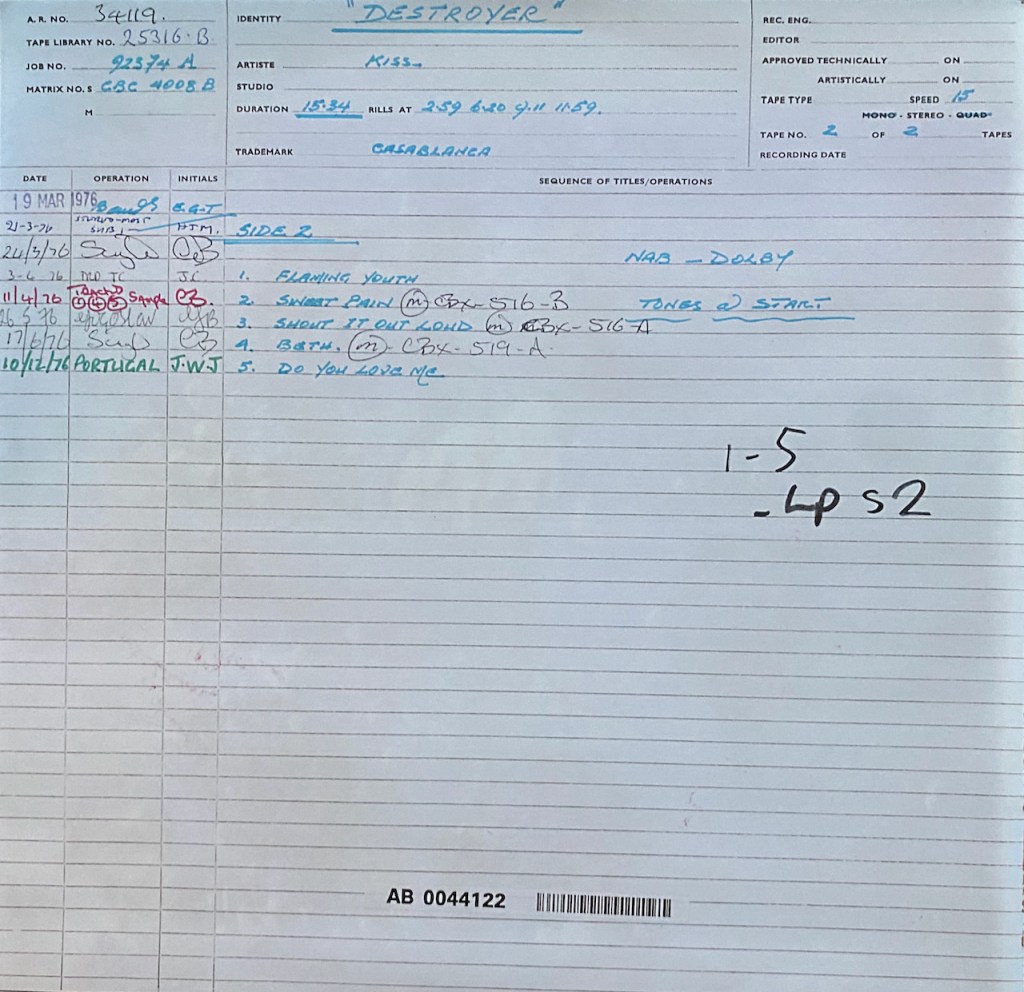 A. R. NO. 34119.
TAPE LIBRARY NO. 25316·B
JOB NO. 92374 A
MATRIX NO. S CBC 4008 B
M
IDENTITY "DESTROYER"
ARTISTE KISS.
STUDIO
DURATION 15·34 RILLS AT 2·59 6·20 9·11 11·59.
TRADEMARK CASABLANCA
REC. ENG.
EDITOR
APPROVED TECHNICALLY ON
ARTISTICALLY ON
TAPE TYPE SPEED 15
MONO - STEREO - QUAD
TAPE NO. 2 OF 2 TAPES
RECORDING DATE
DATE OPERATION INITIALS SEQUENCE OF TITLES/OPERATIONS
19 MAR 1976 E.G.T
21-3-76 H.J.M. SIDE 2
24/3/76 CB
NAB - DOLBY
3-4-76 J.C 1. FLAMING YOUTH
11/4/76 Sample CB. 2. SWEET PAIN (m) CBX-516-B TONES @ START
26 5 76 3. SHOUT IT OUT LOUD (m) CBX-516-A
17/6/76 CB 4. BETH. (m) CBX-519-A.
10/12/76 PORTUGAL J.W.J 5. DO YOU LOVE ME
1-5
- LP S2
AB 0044122